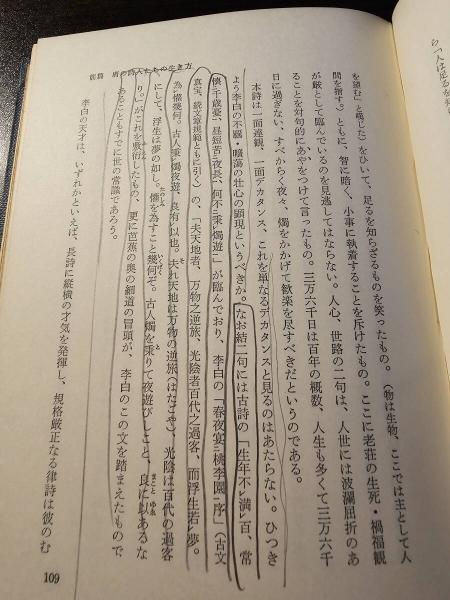 ら「人は足るを知
を望む」と嘆じた)をひいて、足るを知らざるものを笑ったもの。(物は生物、ここでは主として人
間を指す)。ともに、智に暗く、小事に執着することを斥けたもの。ここに老荘の生死・禍福観
が厳として臨んでいるのを見逃してはならない。人心、世路の二句は、人世には波瀾屈折のあ
ることを対句的にあやをつけて言ったもの。三万六千日は百年の概数、人生も多くて三万六千
日に過ぎない、すべからく夜々、燭をかかげて歓楽を尽すべきだというのである。
本詩は一面達観、一面デカタンス、これを単なるデカタンスと見るのはあたらない。ひっき
よう李白の不羈・曠蕩の壮心の顕現というべきか。なお結二句には古詩の「生年不満百、常
懐千歳憂、昼短苦夜長、何不秉燭遊」が臨んでおり、李白の「春夜宴桃李園序」(古文
真宝、続文章規範ともに引く)の、「夫天地者、万物之逆旅、光陰者百代之過客、而浮生若夢。
為懽幾何。古人秉燭夜遊、良有以也。夫れ天地は万物の逆旅(はたごや)、光陰は百代の過客
にして、浮生は夢の如し、懽を為すこと幾何ぞ。古人燭を秉りて夜遊びしこと、良に以あるな
り。」がこれを敷衍したもの、更に芭蕉の奥の細道の冒頭が、李白のこの文を踏まえたもので
あることもすでに世の常識であろう。
李白の天才は、いずれかといえば、長詩に縦横の才気を発揮し、規格厳正なる律詩は彼のむ
前篇 唐の詩人たちの生き方
109